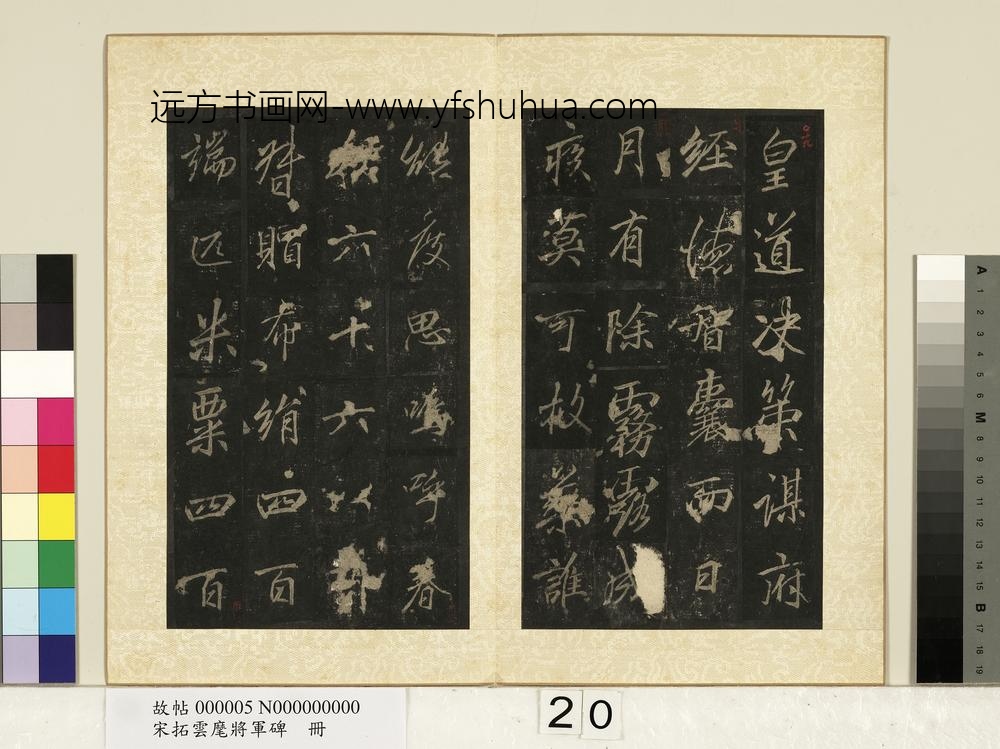 远方书画网-www.yfshuhua.com
皇道决策謀府
經德智囊而日
月有除霧露成
疾莫可救藥誰
能度思嗚呼春
秋六十六以
賵布絹四百
端匹米粟四百
故帖 000005 N000000000
宋拓雲麾將軍碑 冊
20
A 1 2 3 4 5 6 M 8 9 10 11 12 13 14 15 B 17 18 19